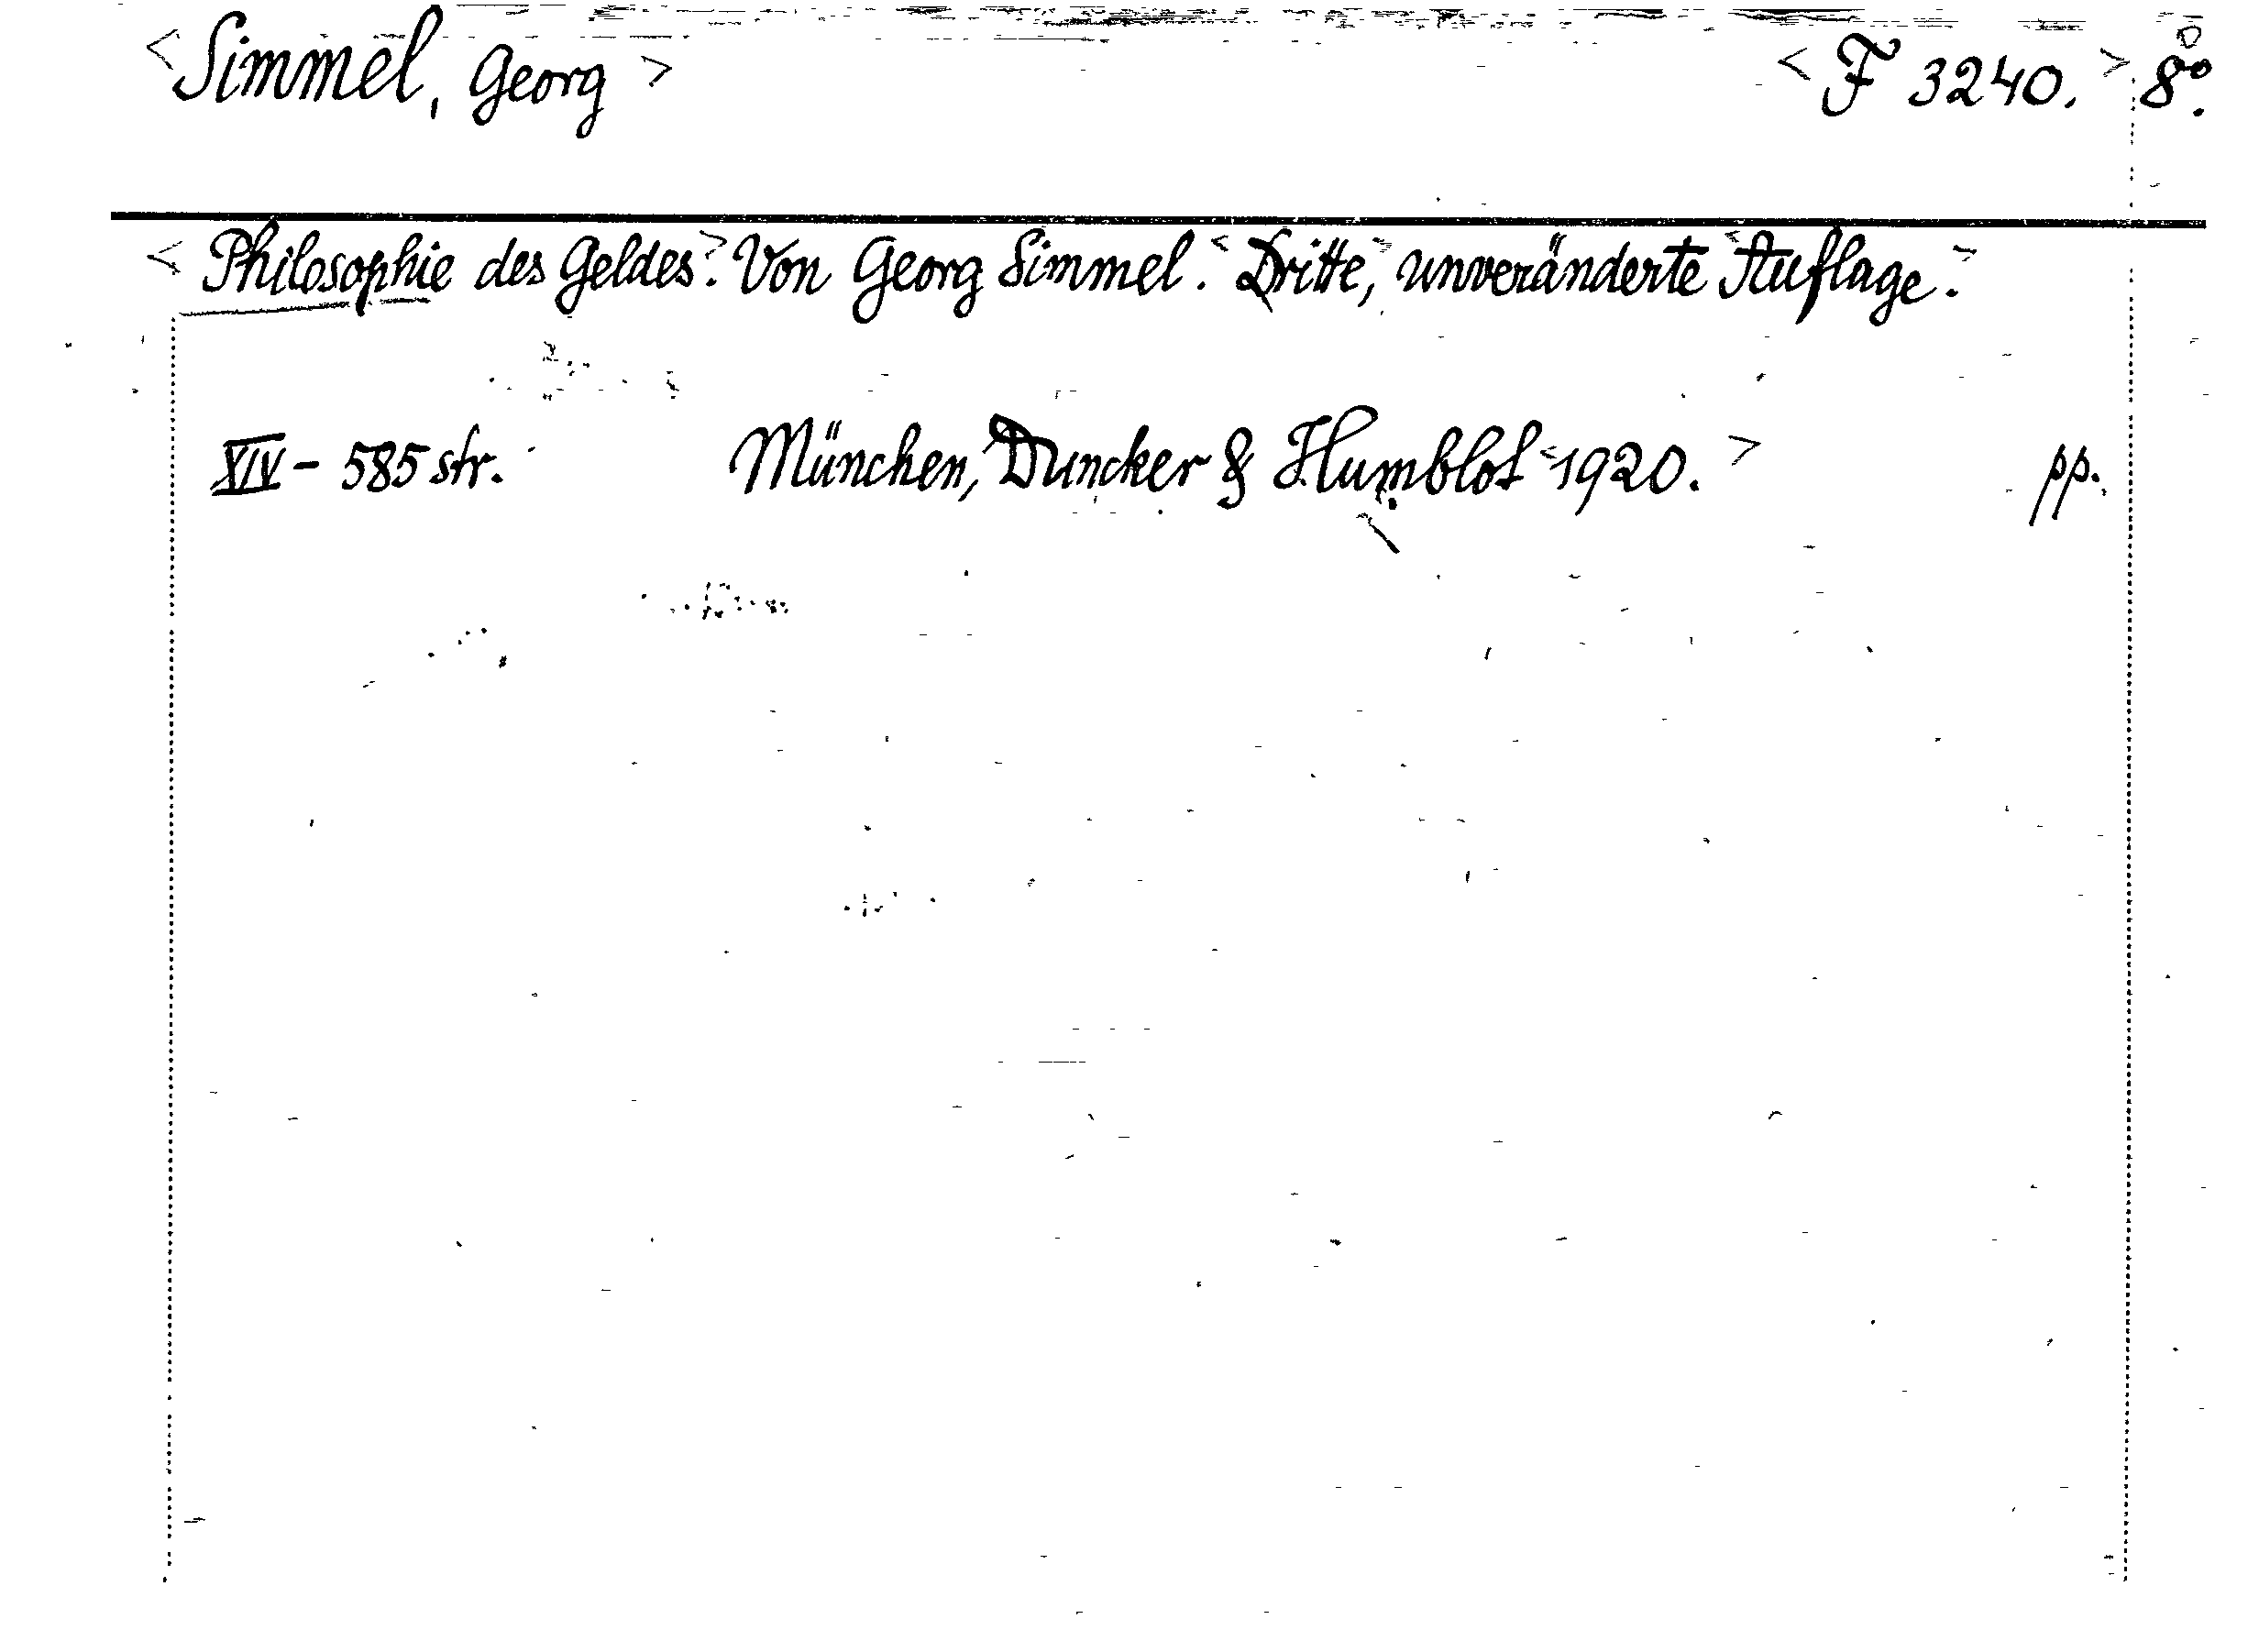 <Simmel, Georg> <F 3240.> 8°.
<Philosophie des Geldes>. Von Georg Simmel. <Dritte,> unveränderte <Auflage.>
XIV - 585 str. München, Duncker & Humblot <1920.> pp.